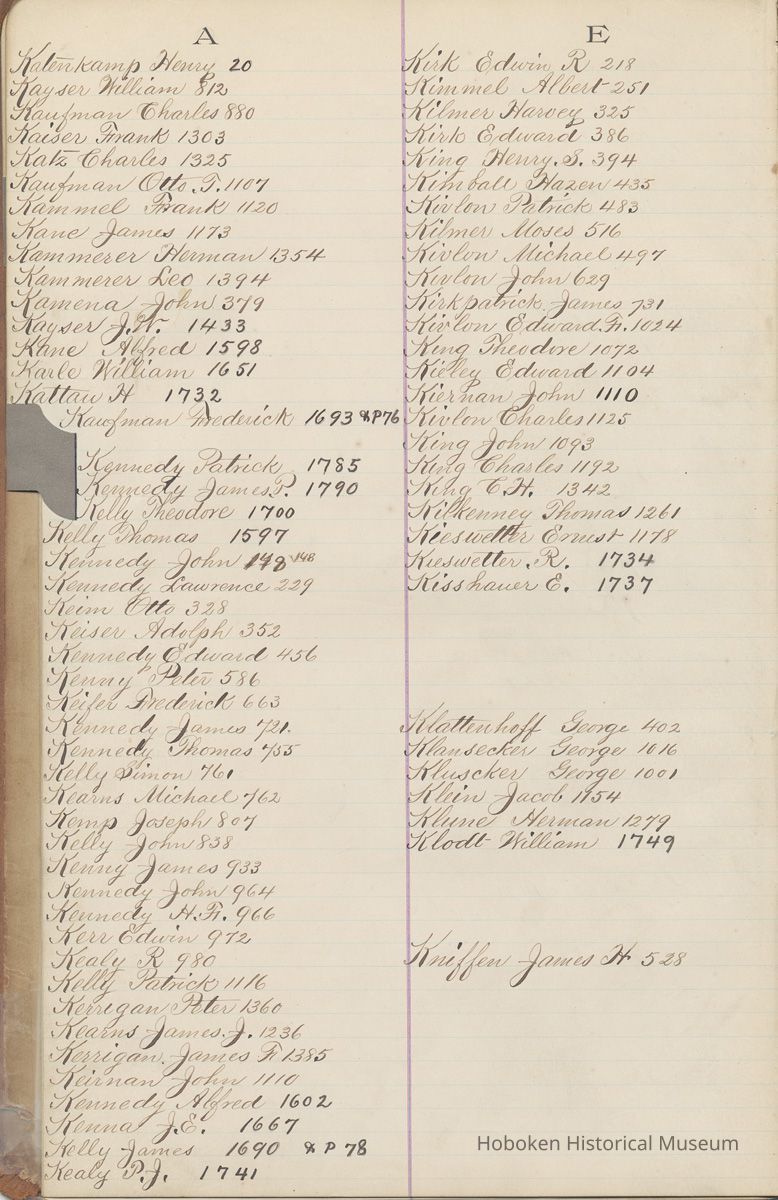 A
Katenkamp Henry 20
Kayser William 812
Kaufman Charles 880
Kaiser Frank 1303
Katz Charles 1325
Kaufman Otto T. 1107
Kammel Frank 1120
Kane James 1173
Kammerer Herman 1354
Kammerer Leo 1394
Kamena John 379
Kayser J.W. 1433
Kane Alfred 1598
Karle William 1651
Kattau H 1732
Kaufman Frederick 1693 & P 76
Kennedy Patrick 1785
Kennedy James P. 1790
Kelly Theodore 1700
Kelly Thomas 1597
Kennedy John 148 148
Kennedy Lawrence 229
Keim Otto 328
Keiser Adolph 352
Kennedy Edward 456
Kenny Peter 586
Keifer Frederick 663
Kennedy James 721.
Kennedy Thomas 755
Kelly Simon 761
Kearns Michael 762
Kemp Joseph 807
Kelly John 838
Kenny James 933
Kennedy John 964
Kennedy H.F. 966
Kerr Edwin 972
Kealy R 980
Kelly Patrick 1116
Kerrigan Peter 1360
Kearns James J. 1236
Kerrigan James F 1385
Keirnan John 1110
Kennedy Alfred 1602
Kenna J.E. 1667
Kelly James 1690 & P 78
Kealy P.J. 1741
E
Kirk Edwin R 218
Kimmel Albert 251
Kilmer Harvey 325
Kirk Edward 386
King Henry S. 394
Kimball Hazen 435
Kivlon Patrick 483
Kilmer Moses 516
Kivlon Michael 497
Kivlon John 629
Kirkpatrick James 731
Kivlon Edward F. 1024
King Theodore 1072
Kieley Edward 1104
Kiernan John 1110
Kivlon Charles 1125
King John 1093
King Charles 1192
King C.H. 1342
Kilkenney Thomas 1261
Kieswetter Ernest 1178
Kieswetter R. 1734
Kisshauer E. 1737
Klattenhoff George 402
Klansecker George 1016
Kluscker George 1001
Klein Jacob 1154
Klune Herman 1279
Klodt William 1749
Kniffen James H 528
Hoboken Historical Museum